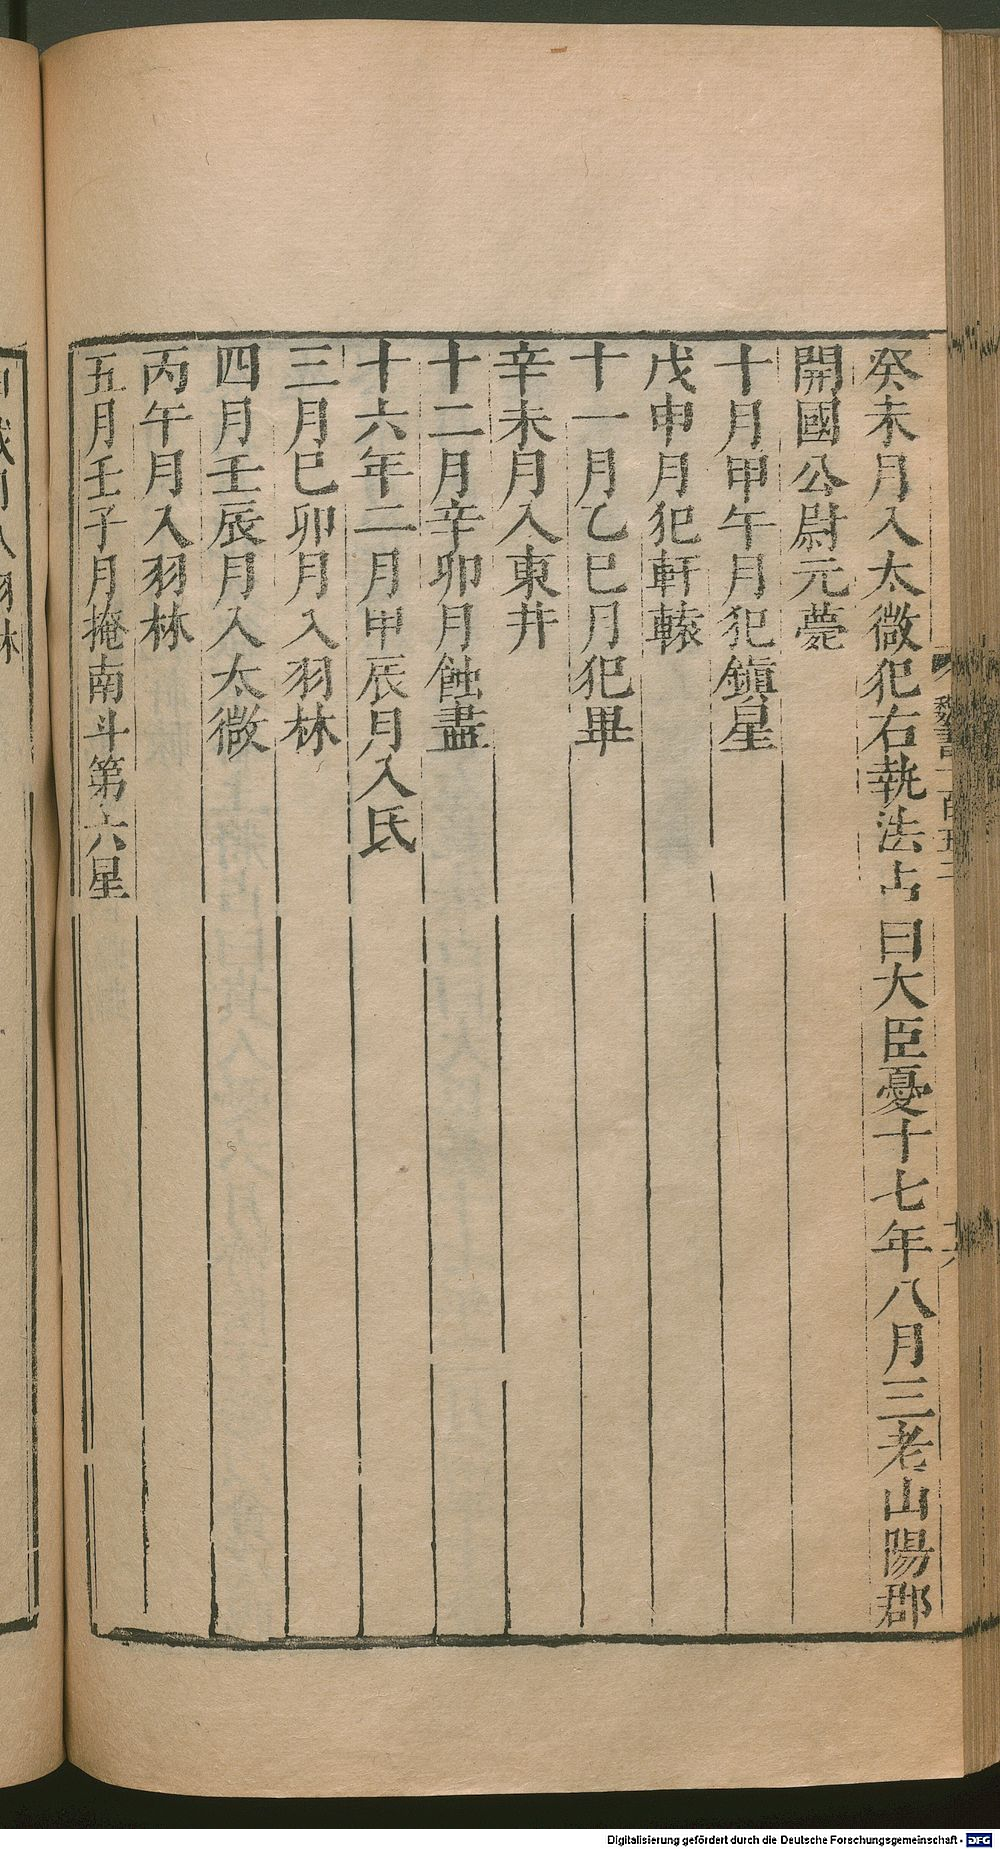 癸未月入太微犯右執法占曰大臣憂十七年八月三老山陽郡
開國公尉元薨
十月甲午月犯鎮星
戊申月犯軒轅
十一月乙巳月犯畢
辛未月入東井
十二月辛卯月蝕盡
十六年二月甲辰月入氐
三月巳卯月入羽林
四月壬辰月入太微
丙午月入羽林
五月壬子月掩南斗第六星
Digitalisierung gefördert durch die Deutsche Forschungsgemeinschaft - DFG